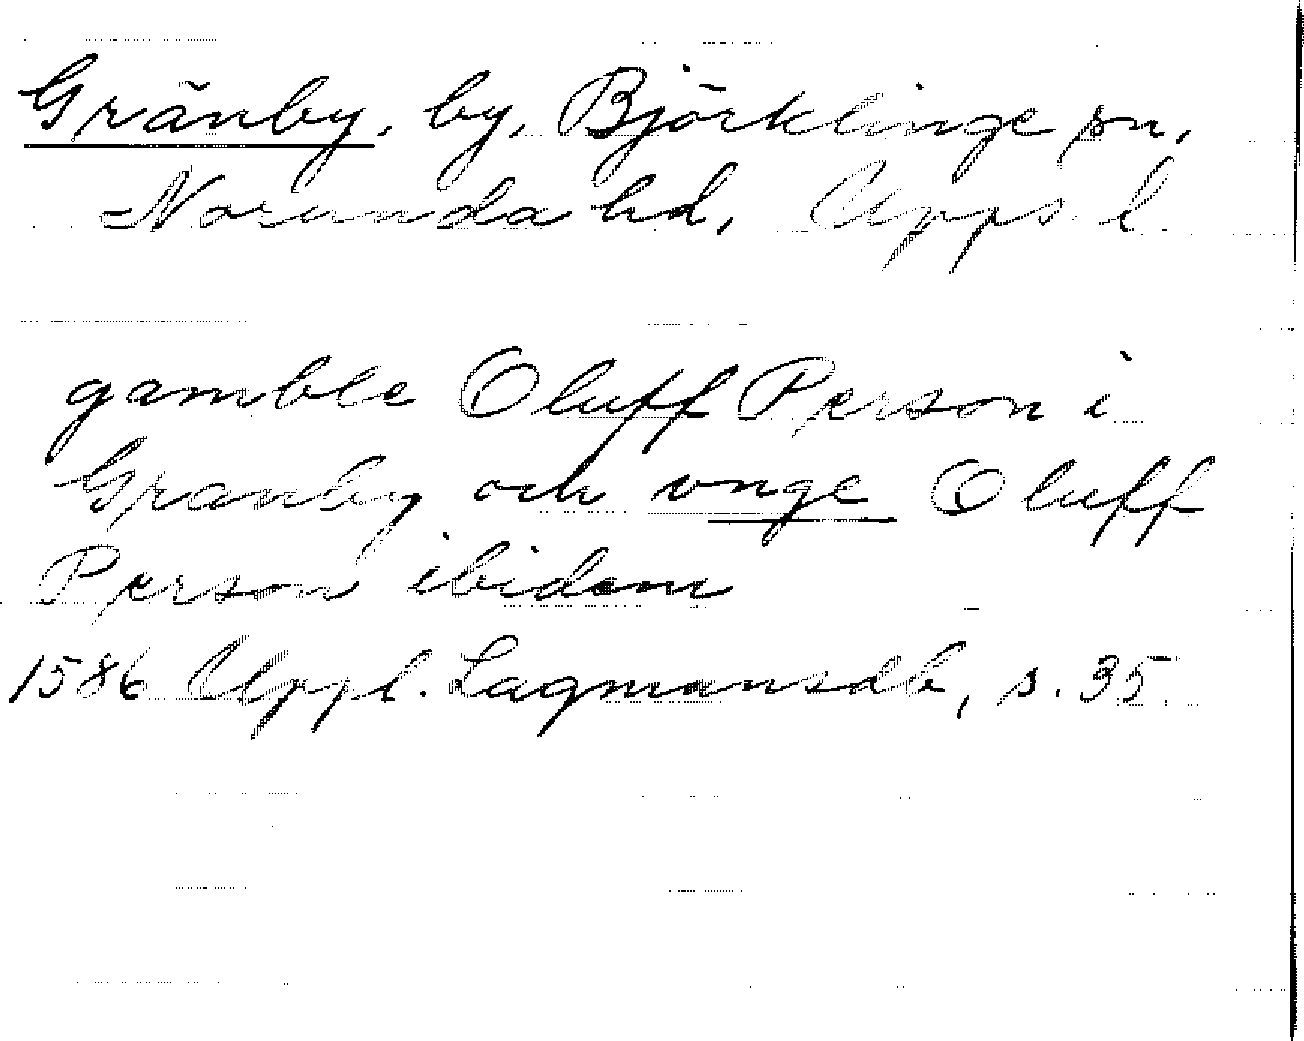 Gränby, by, Björklinge sn,
Norunda hd, Upps. l
gamble Oluff Person i
Granby och vnge Oluff
Person ibidem
1586 Uppl. Lagmansdb, s. 35.